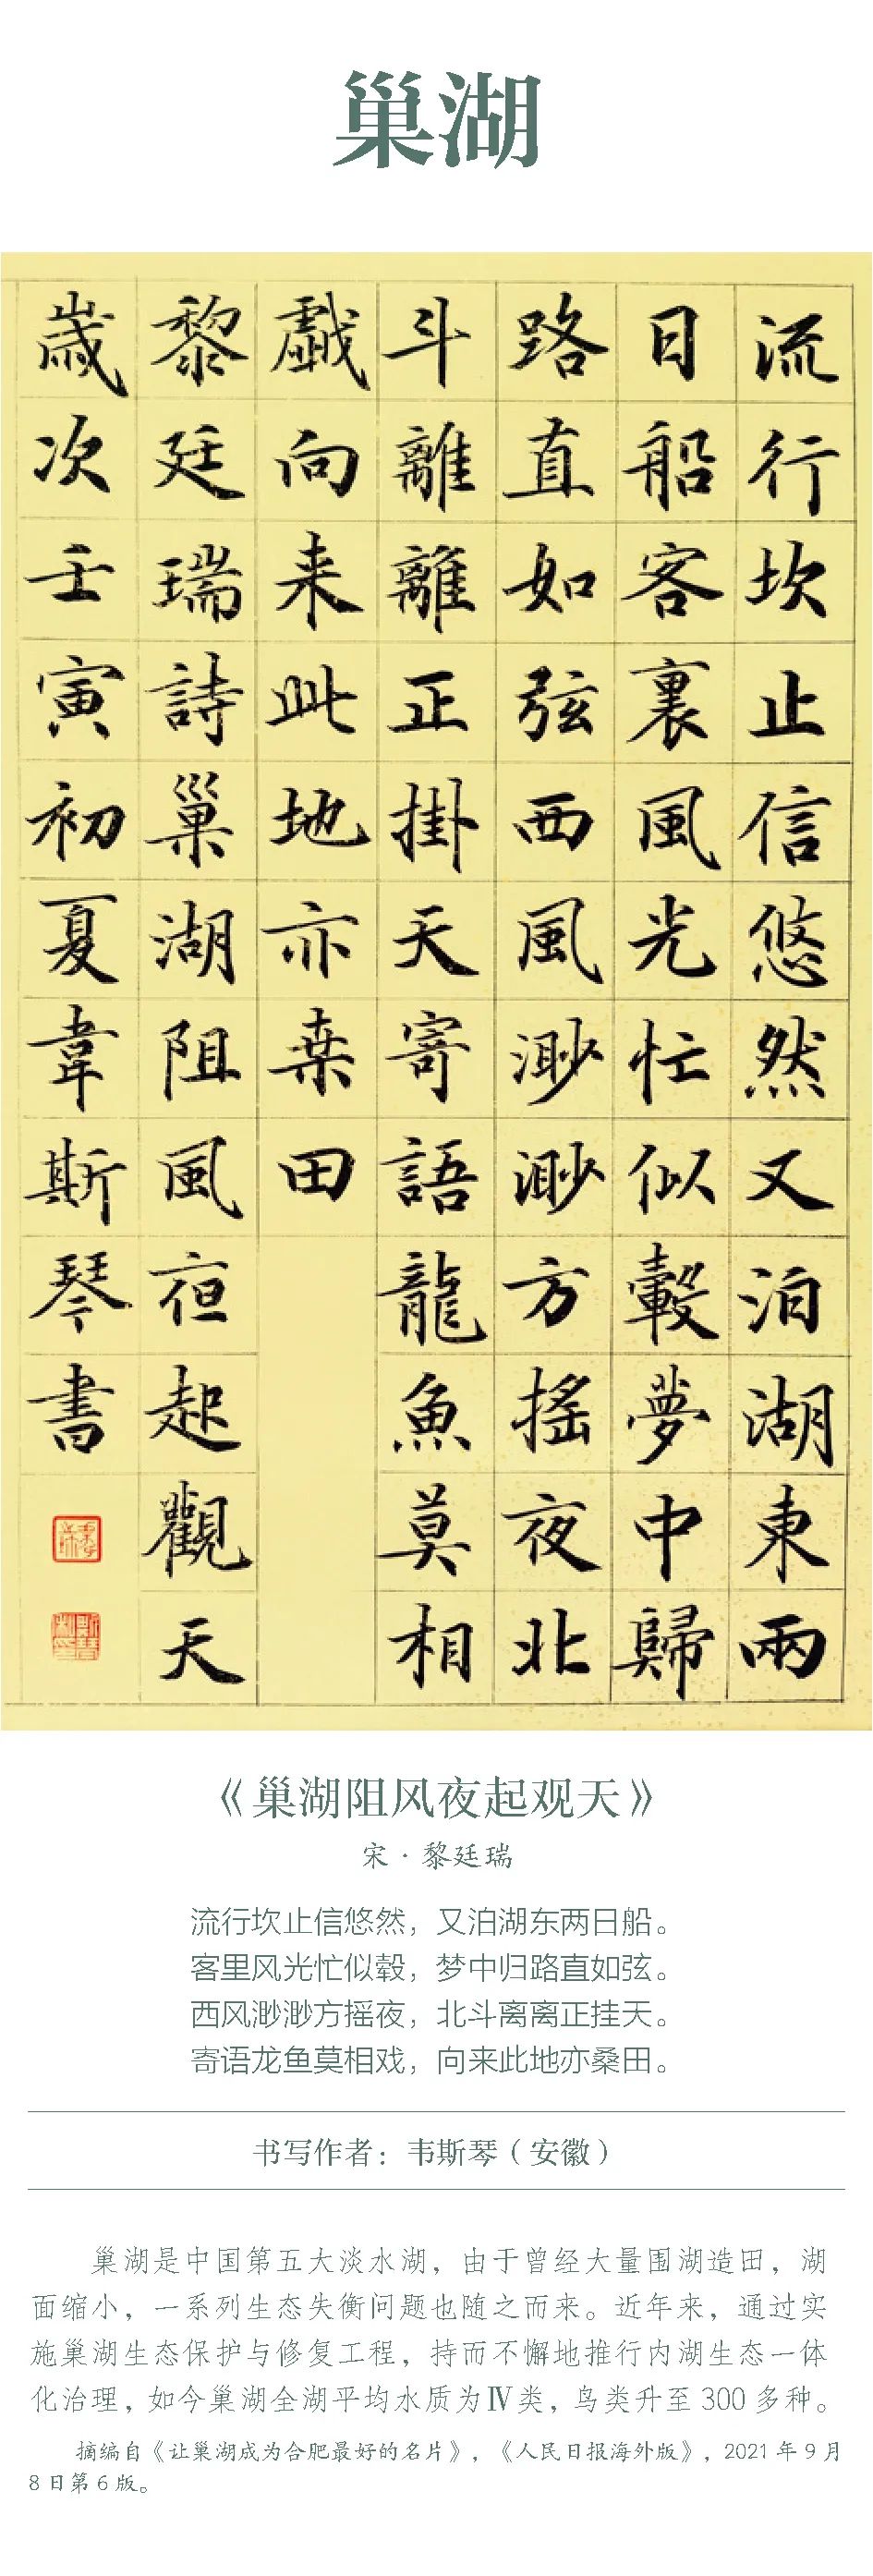 巢湖
流行坎止信悠然又泊湖東兩
日船客裏風光忙似轂夢中歸
路直如弦西風渺渺方搖夜北
斗離離正掛天寄語龍魚莫相
戲向来此地亦桒田
黎廷瑞詩巢湖阻風夜起觀天
歲次壬寅初夏韋斯琴書
《巢湖阻风夜起观天》
宋·黎廷瑞
流行坎止信悠然，又泊湖东两日船。
客里风光忙似毂，梦中归路直如弦。
西风渺渺方摇夜，北斗离离正挂天。
寄语龙鱼莫相戏，向来此地亦桑田。
书写作者：韦斯琴（安徽）
巢湖是中国第五大淡水湖，由于曾经大量围湖造田，湖
面缩小，一系列生态失衡问题也随之而来。近年来，通过实
施巢湖生态保护与修复工程，持而不懈地推行内湖生态一体
化治理，如今巢湖全湖平均水质为Ⅳ类，鸟类升至 300 多种。
摘编自《让巢湖成为合肥最好的名片》，《人民日报海外版》，2021 年 9 月
8 日第 6 版。